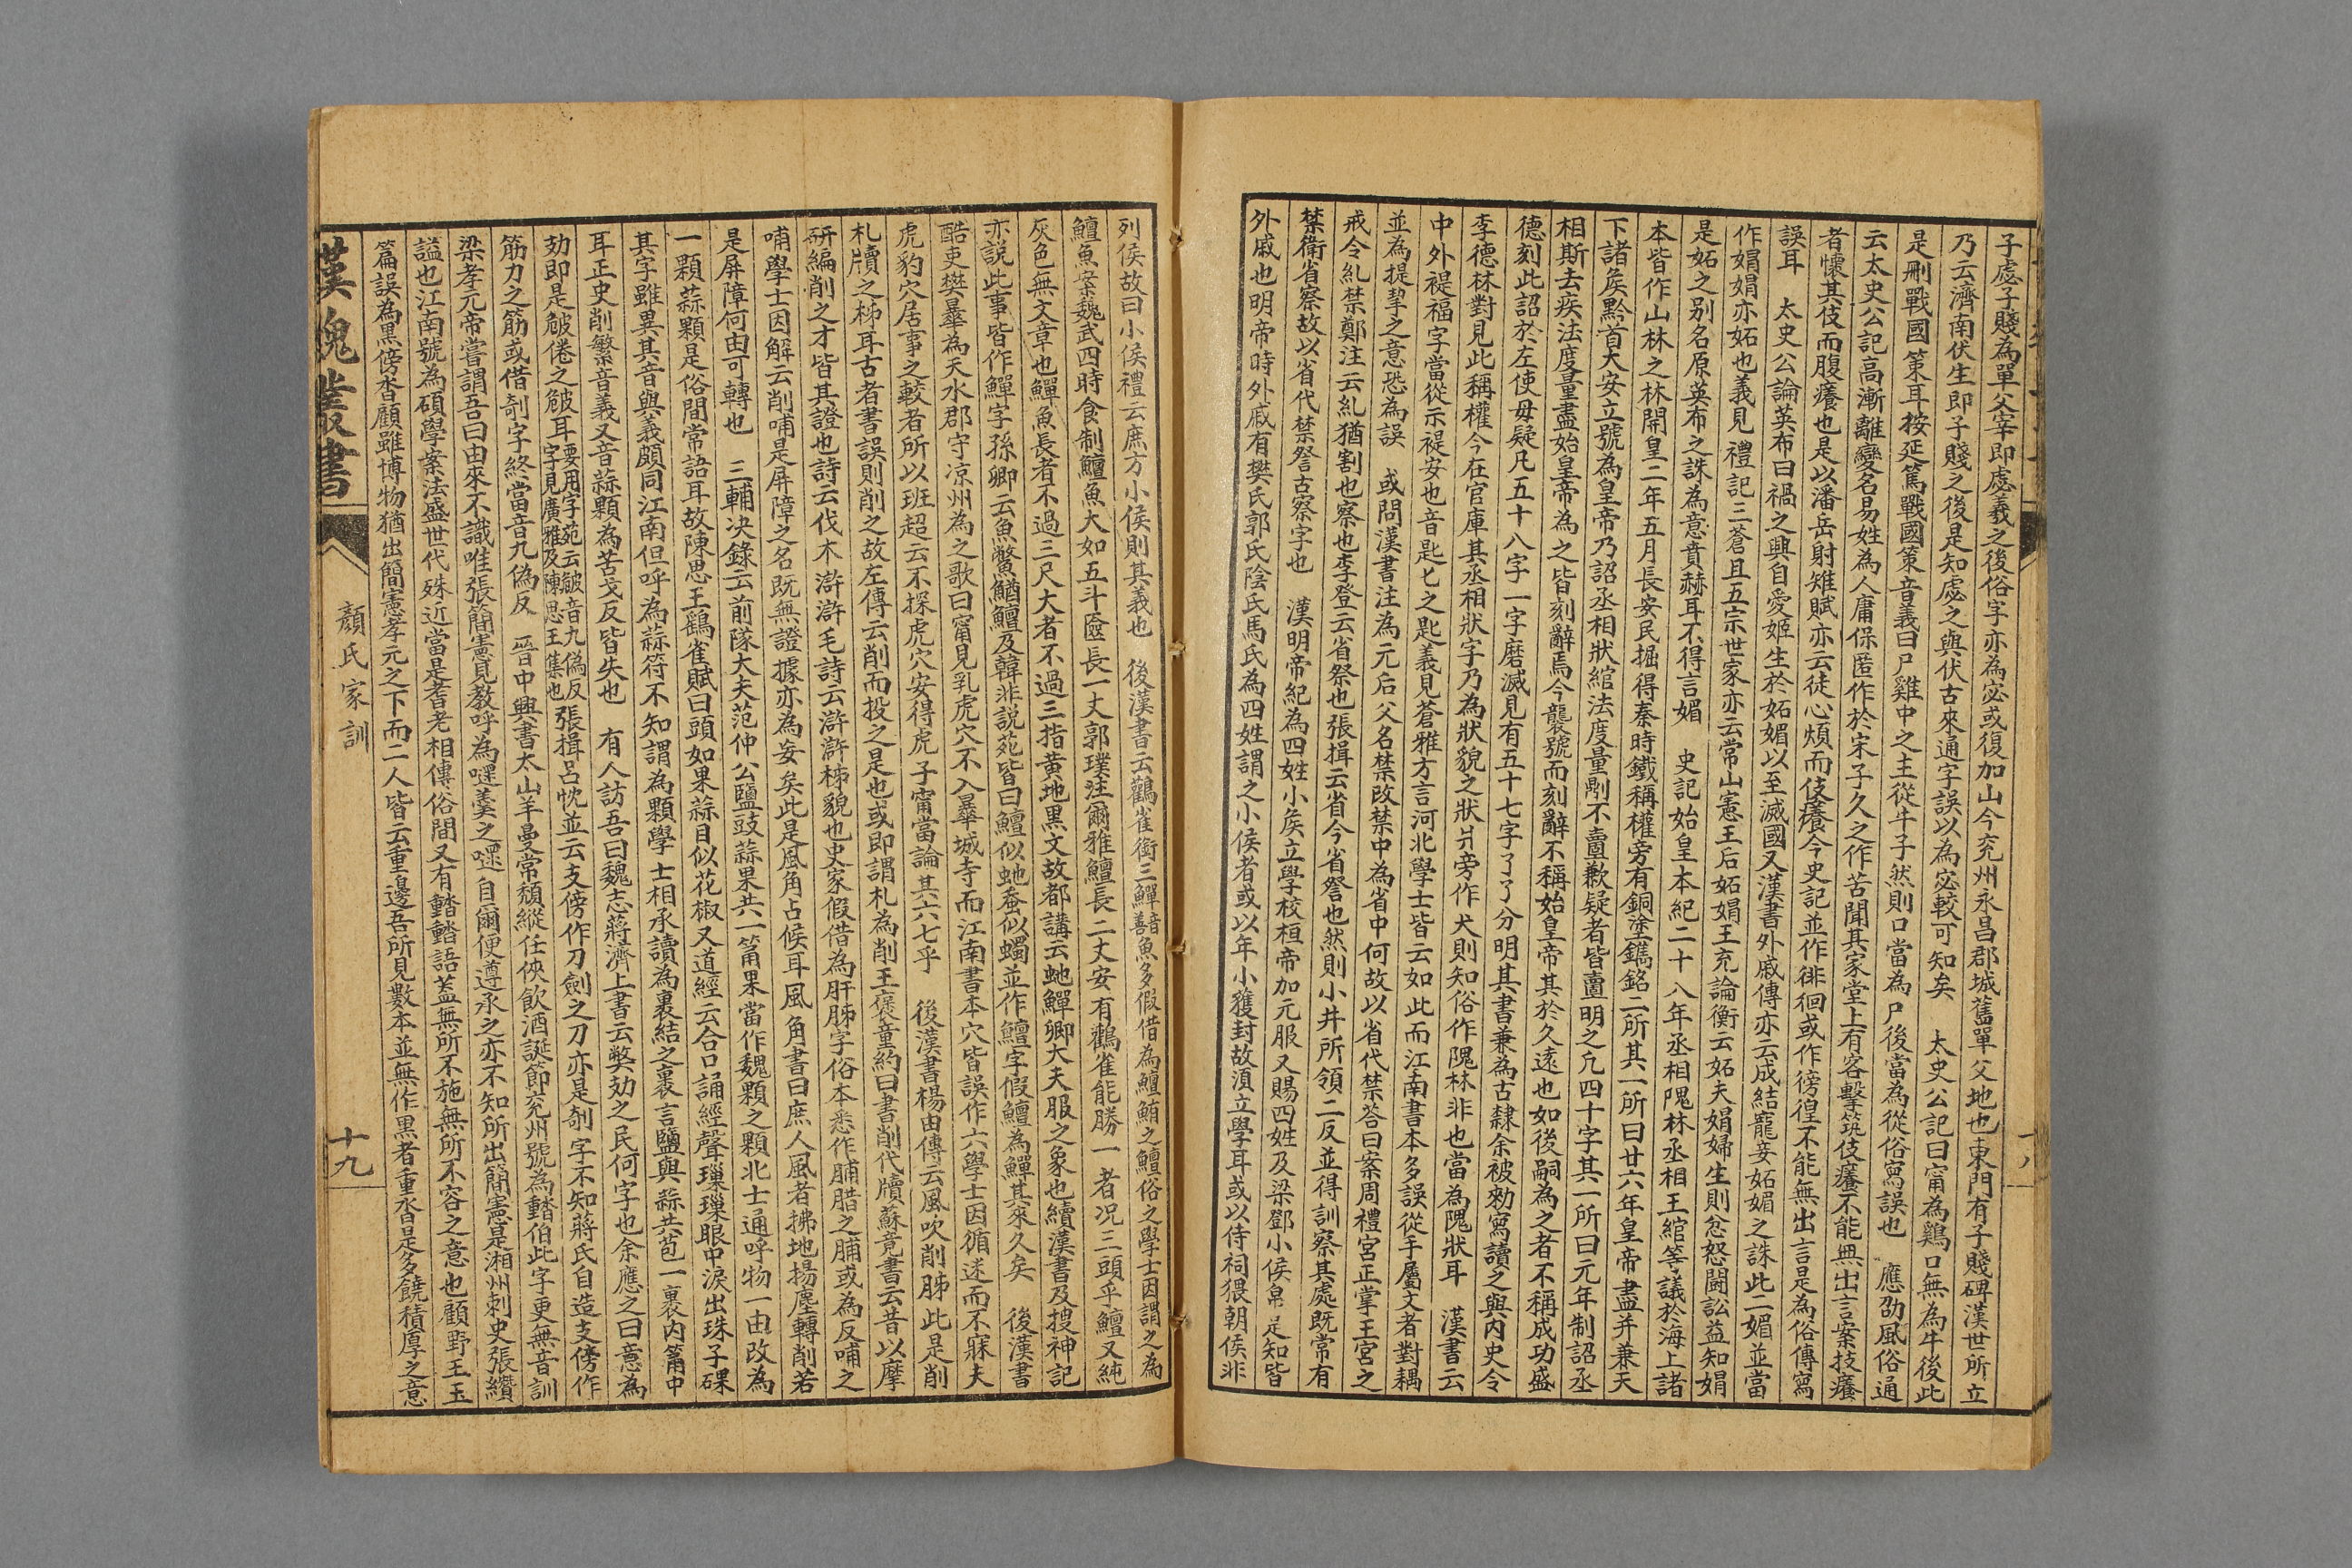 子處子賤為單父宰即處羲之後俗字亦為宓或復加山今兖州永昌郡城舊單父地也東門有子賤碑漢世所立
乃云濟南伏生即子賤之後是知處之與伏古來通字誤以為宓較可知矣　太史公記曰甯為鷄口無為牛後此
是刪戰國策耳按延篤戰國策音義曰尸雞中之主從牛子然則口當為尸後當為從俗寫誤也　應劭風俗通
云太史公記高漸離變名易姓為人庸保匿作於宋子久之作苦聞其家堂上有客擊筑伎癢不能無出言案技癢
者懷其伎而腹癢也是以潘岳射雉賦亦云徒心煩而伎癢今史記並作徘徊或作徬徨不能無出言是為俗傳寫
誤耳　太史公論英布曰禍之興自愛姬生於妬媚以至滅國又漢書外戚傳亦云成結寵妾妬媚之誅此二媚並當
作娟娟亦妬也義見禮記三蒼且五宗世家亦云常山憲王后妬娟王充論衡云妬夫娟婦生則忿怒鬬訟益知娟
是妬之别名原英布之誅為意賁赫耳不得言媚　史記始皇本紀二十八年丞相隗林丞相王綰等議於海上諸
本皆作山林之林開皇二年五月長安民掘得秦時鐵稱權旁有銅塗鐫銘二所其一所曰廿六年皇帝盡并兼天
下諸矦黔首大安立號為皇帝乃詔丞相狀綰法度量劓不壹歉疑者皆壹明之凡四十字其一所曰元年制詔丞
相斯去疾法度量盡始皇帝為之皆刻辭焉今襲號而刻辭不稱始皇帝其於久遠也如後嗣為之者不稱成功盛
德刻此詔於左使毋疑凡五十八字一字磨滅見有五十七字了了分明其書兼為古隸余被勑寫讀之與内史令
李德林對見此稱權今在官庫其丞相狀字乃為狀貌之狀爿旁作犬則知俗作隗林非也當為隗狀耳　漢書云
中外褆福字當從示褆安也音匙匕之匙義見蒼雅方言河北學士皆云如此而江南書本多誤從手屬文者對耦
並為提挈之意恐為誤　或問漢書注為元后父名禁改禁中為省中何故以省代禁荅曰案周禮宮正掌王宮之
戒令糺禁鄭注云糺猶割也察也李登云省祭也張揖云省今省詧也然則小井所領二反並得訓察其處既常有
禁衛省察故以省代禁詧古察字也　漢明帝紀為四姓小矦立學校桓帝加元服又賜四姓及梁鄧小侯帛足知皆
外戚也明帝時外戚有樊氏郭氏陰氏馬氏為四姓謂之小侯者或以年小獲封故湏立學耳或以侍祠猥朝侯非
列侯故曰小侯禮云庶方小侯則其義也　後漢書云鸛雀銜三鱓音善魚多假借為鱣鮪之鱣俗之學士因謂之為
鱣魚案魏武四時食制鱣魚大如五斗匳長一丈郭璞注爾雅鱣長二丈安有鸛雀能勝一者况三頭乎鱣又純
灰色無文章也鱓魚長者不過三尺大者不過三指黄地黒文故都講云虵鱓卿大夫服之象也續漢書及搜神記
亦説此事皆作鱓字孫卿云魚鱉鰌鱣及韓非説苑皆曰鱣似虵蚕似蠋並作鱣字假鱣為鱓其來久矣　後漢書
酷吏樊曅為天水郡守凉州為之歌曰甯見乳虎穴不入曅城寺而江南書本穴皆誤作六學士因循迷而不寐夫
虎豹穴居事之較者所以班超云不探虎穴安得虎子甯當論其六七乎　後漢書楊由傳云風吹削胏此是削
札牘之柹耳古者書誤則削之故左傳云削而投之是也或即謂札為削王褒童約曰書削代牘蘇竟書云昔以摩
研編削之才皆其證也詩云伐木滸滸毛詩云滸滸柹貌也史家假借為肝胏字俗本悉作脯腊之脯或為反哺之
哺學士因解云削哺是屏障之名既無證據亦為妄矣此是風角占候耳風角書曰庶人風者拂地揚塵轉削若
是屏障何由可轉也　三輔决錄云前隊大夫范仲公鹽豉蒜果共一筩果當作魏顆之顆北士通呼物一由改為
一顆蒜顆是俗間常語耳故陳思王鷂雀賦曰頭如果蒜目似花椒又道經云合口誦經聲璅璅眼中淚出珠子䂺
其字雖異其音與義頗同江南但呼為蒜符不知謂為顆學士相承讀為裏結之裏言鹽與蒜共苞一裏内筩中
耳正史削繁音義又音蒜顆為苦戈反皆失也　有人訪吾曰魏志蔣濟上書云獘攰之民何字也余應之曰意為
攰即是㿉倦之㿉耳要用字苑云㿉音九偽反字見廣雅及陳思王集也張揖呂忱並云支傍作刀劍之刀亦是剞字不知蔣氏自造支傍作
筋力之筋或借剞字終當音九偽反　晉中興書太山羊曼常頹縱任俠飲酒誕節兖州號為䵬伯此字更無音訓
梁孝元帝嘗謂吾曰由來不識唯張簡憲見教呼為嚃羹之嚃自爾便遵承之亦不知所出簡憲是湘州刺史張纘
謚也江南號為碩學案法盛世代殊近當是耆老相傳俗間又有䵬䵬語蓋無所不施無所不容之意也顧野王玉
篇誤為黒傍沓顧雖博物猶出簡憲孝元之下而二人皆云重邊吾所見數本並無作黒者重沓是多饒積厚之意
漢魏叢書
顏氏家訓
十九